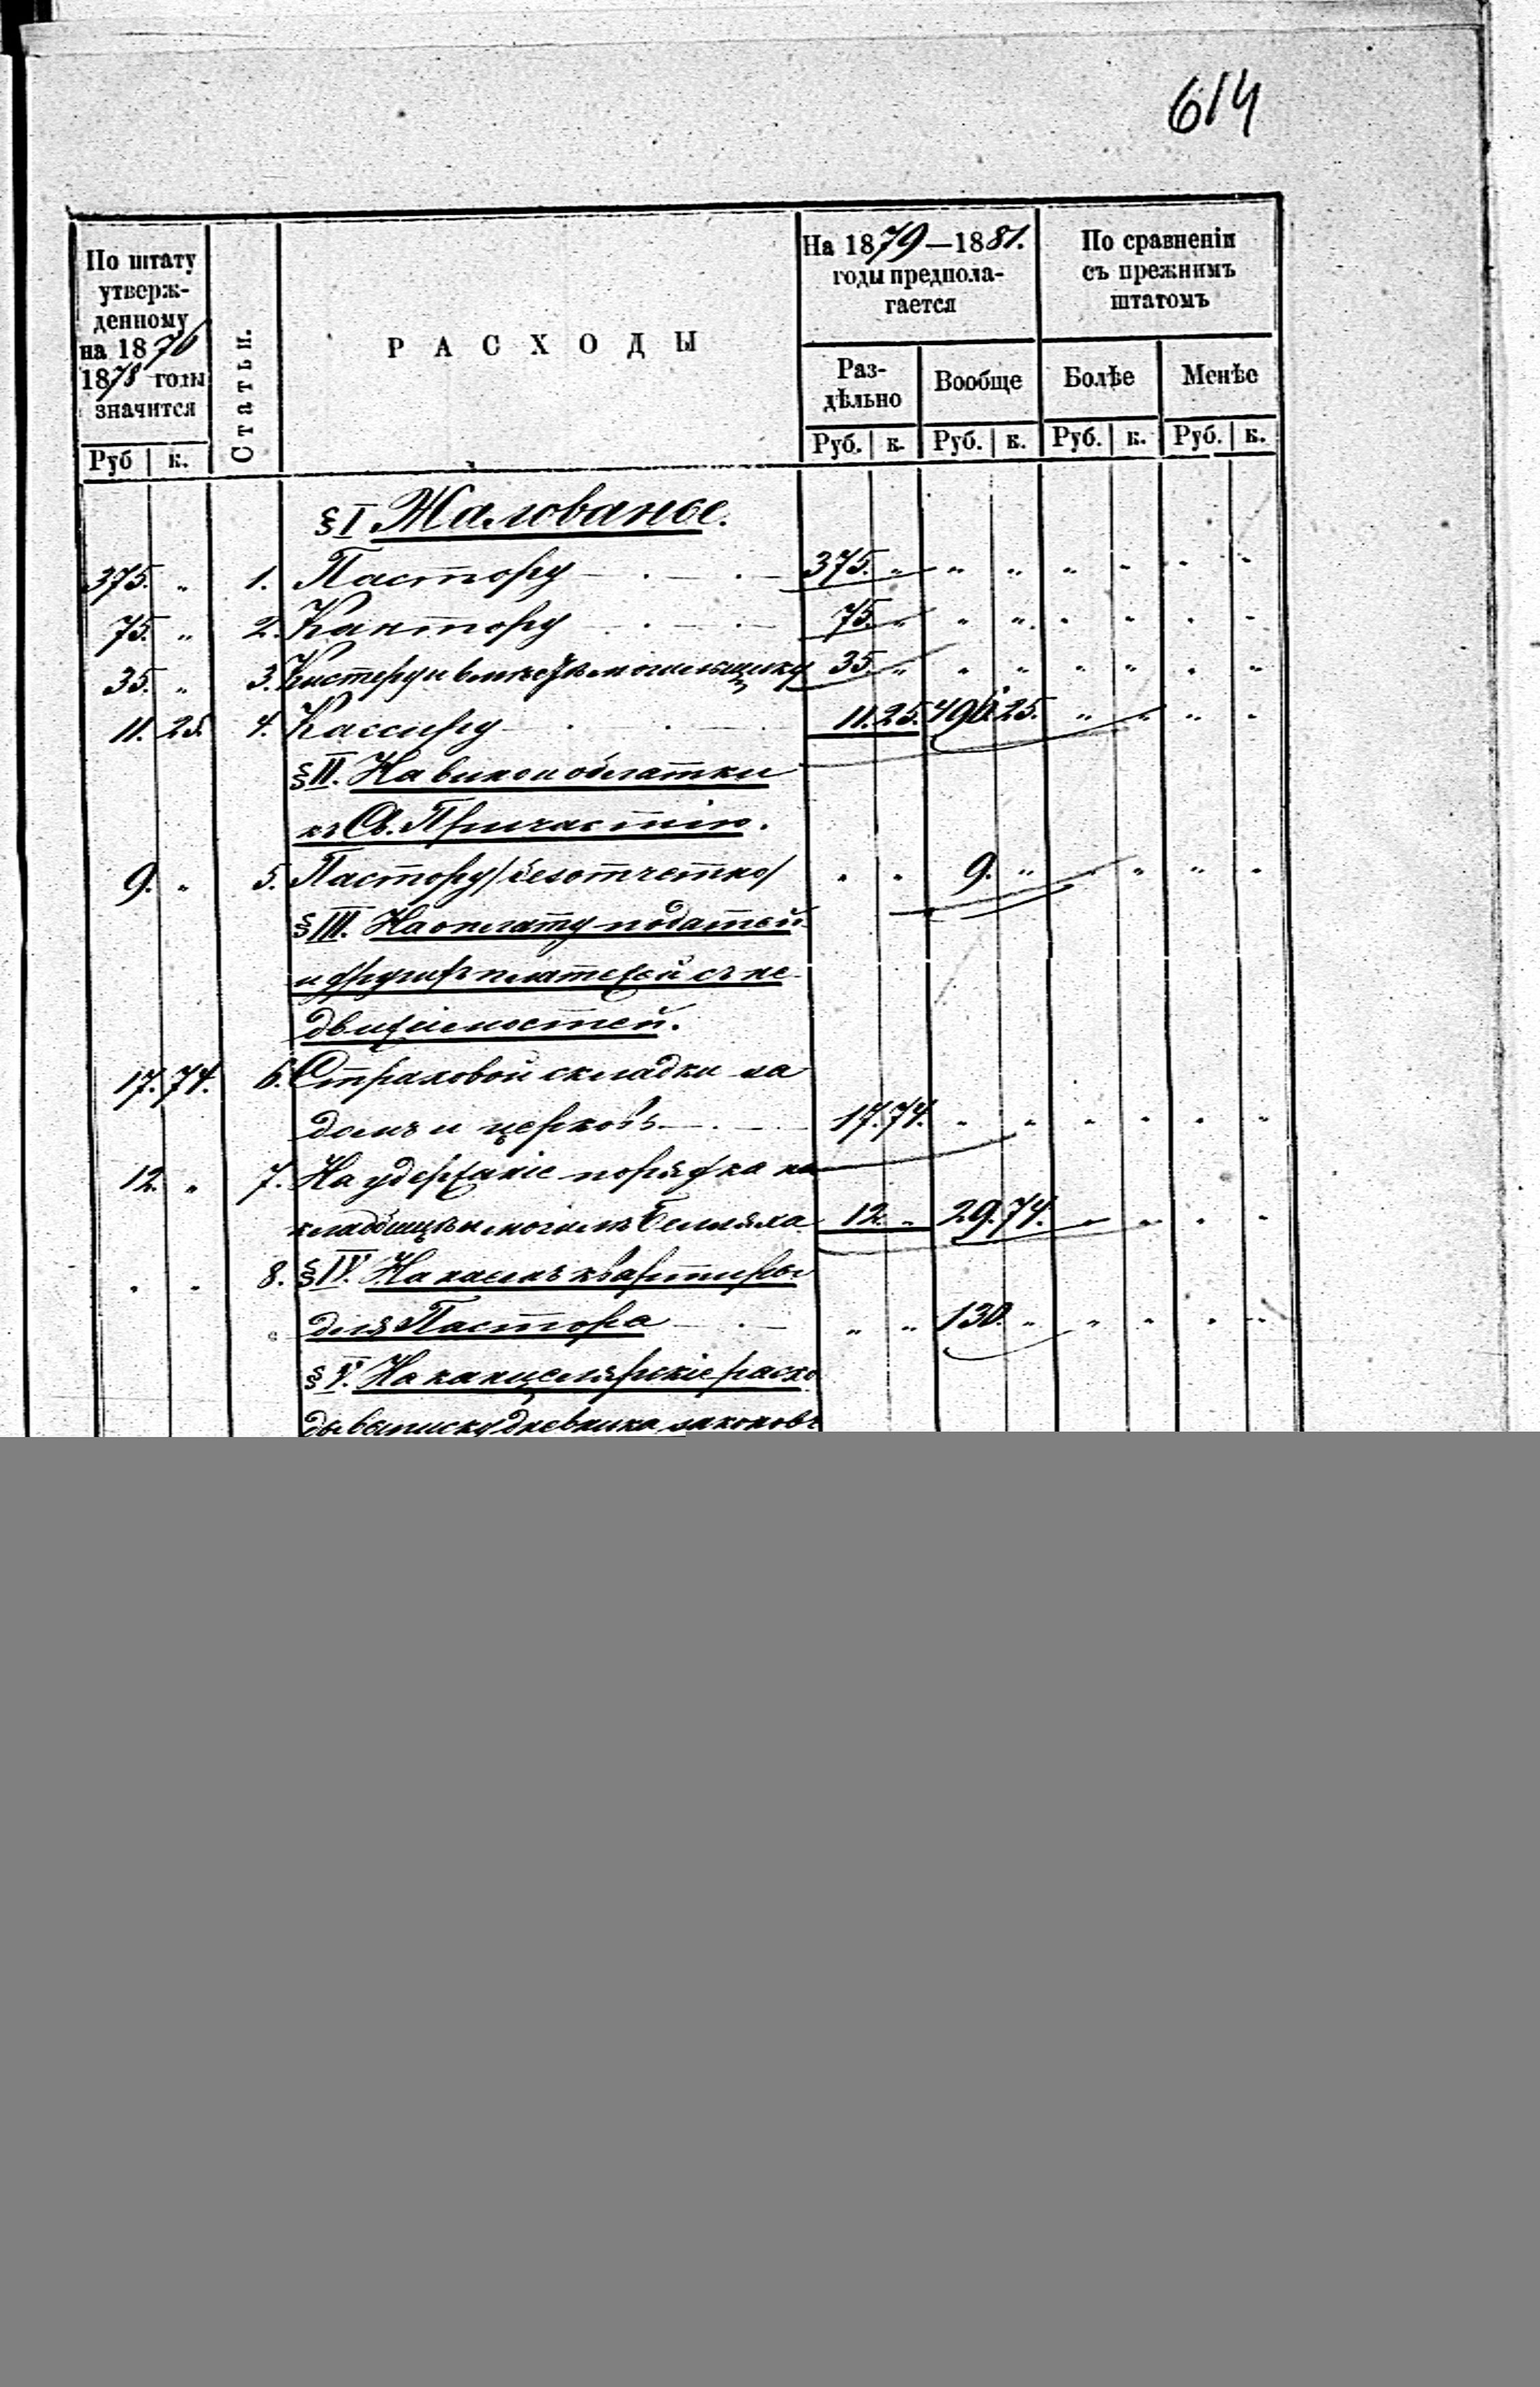 614
По штату
утверж-
денному
на 1876
1878 годы
значится
Руб к.
Статьи.
РАСХОДЫ
На 1879—1881.
годы предпола-
гается
Раз-
дѣльно
Вообще
Руб. к. Руб. к.
По сравненіи
съ прежнимъ
штатомъ
Болѣе
Менѣе
Руб. к. Руб. к.
§ I. Жалованье.
375. „ 1. Пастору — . — . — 375. „ „ „ „ „ „ „
75. „ 2. Кантору — . — . — 75. „ „ „ „ „ „ „
35. „ 3. Кистеру и вмѣстѣ могильщику 35. „ „ „ „ „ „ „
11. 25. 4. Кассиру — . . 11. 25. 496. 25. „ „ „ „
§ II. На вино и облатки
къ Св. Причастію.
9. „ 5. Пастору /безотчетно/ „ „ 9. „ „ „ „ „
§ III. На оплату податей
и другихъ платежей съ не-
движимостей.
17. 74. 6. Страховой складки за
домъ и церковь — . — 17. 74. „ „ „ „ „ „
12. „ 7. На удержаніе порядка на
кладбищѣ и могилъ 12. „ 29. 74. „ „ „ „
„ „ 8. § IV. На наемъ квартиры
для Пастора — . — „ „ 130. „ „ „ „ „
§ V. На канцелярскіе расхо
ды выписку дневника законовъ